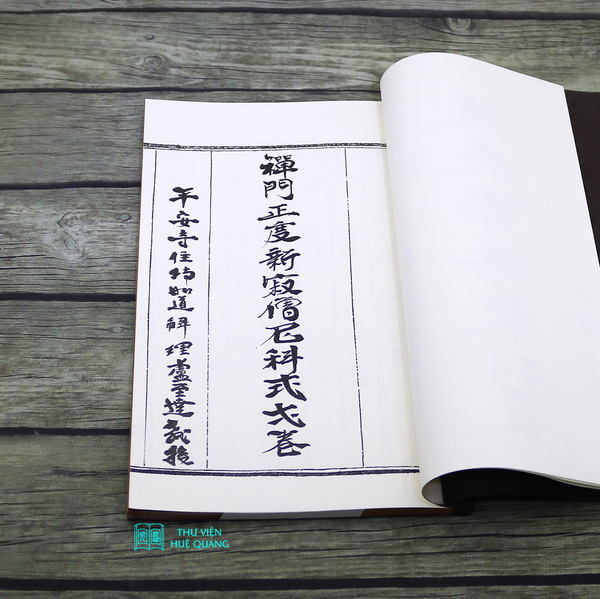 禪門正度新寂僧尼科式弍卷
平安寺住持如道辉理盧至達敬授
THƯ VIỆN
HUỆ QUANG